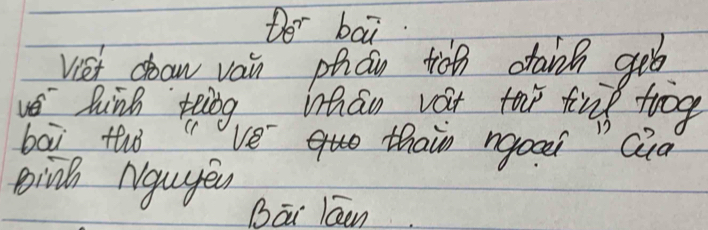 Đề bài.
Viết đoạn văn phân tích đánh giá
về hình tượng nhân vật trữ tình trong
bài thơ "Về quê thăm ngoại" của
Bình Nguyên
Bài làm.